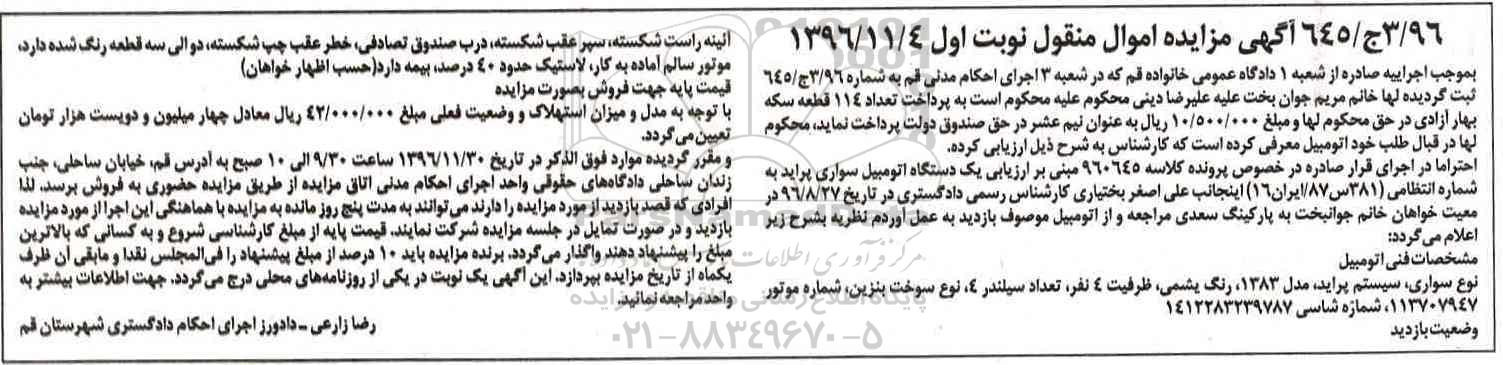 ۳/۹۶ج/۶۴۵ آگهی مزایده اموال منقول نوبت اول ۱۳۹۶/۱۱/۴
بموجب اجراییه صادره از شعبه ۱ دادگاه عمومی خانواده قم که در شعبه ۳ اجرای احکام مدنی قم به شماره ۳/۹۶ج/۶۴۵
ثبت گردیده لها خانم مریم جوان بخت علیه علیرضا دینی محکوم علیه محکوم است به پرداخت تعداد ۱۱۴ قطعه سکه
بهار آزادی در حق محکوم لها و مبلغ ۱۰/۵۰۰/۰۰۰ ریال به عنوان نیم عشر در حق صندوق دولت پرداخت نماید، محکوم
لها در قبال طلب خود اتومبیل معرفی کرده است که کارشناس به شرح ذیل ارزیابی کرده.
احتراما در اجرای قرار صادره در خصوص پرونده کلاسه ۹۶۰۶۴۵ مبنی بر ارزیابی یک دستگاه اتومبیل سواری پراید به
شماره انتظامی (۳۸۱س۸۷/ایران۱۶) اینجانب علی اصغر بختیاری کارشناس رسمی دادگستری در تاریخ ۹۶/۸/۲۷ در
معیت خواهان خانم جوانبخت به پارکینگ سعدی مراجعه و از اتومبیل موصوف بازدید به عمل آوردم نظریه بشرح زیر
اعلام می‌گردد:
مشخصات فنی اتومبیل
نوع سواری، سیستم پراید، مدل ۱۳۸۳، رنگ یشمی، ظرفیت ۴ نفر، تعداد سیلندر ۴، نوع سوخت بنزین، شماره موتور
۱۱۳۷۰۷۹۴۷، شماره شاسی ۱۴۱۲۲۸۳۲۳۹۷۸۷
وضعیت بازدید
آئینه راست شکسته، سپر عقب شکسته، درب صندوق تصادفی، خطر عقب چپ شکسته، دوالی سه قطعه رنگ شده دارد،
موتور سالم آماده به کار، لاستیک حدود ۴۰ درصد، بیمه دارد(حسب اظهار خواهان)
قیمت پایه جهت فروش بصورت مزایده
با توجه به مدل و میزان استهلاک و وضعیت فعلی مبلغ ۴۲/۰۰۰/۰۰۰ ریال معادل چهار میلیون و دویست هزار تومان
تعیین می‌گردد.
و مقرر گردیده موارد فوق الذکر در تاریخ ۱۳۹۶/۱۱/۳۰ ساعت ۹/۳۰ الی ۱۰ صبح به آدرس قم، خیابان ساحلی، جنب
زندان ساحلی دادگاه‌های حقوقی واحد اجرای احکام مدنی اتاق مزایده از طریق مزایده حضوری به فروش برسد. لذا
افرادی که قصد بازدید از مورد مزایده را دارند می‌توانند به مدت پنج روز مانده به مزایده با هماهنگی این اجرا از مورد مزایده
بازدید و در صورت تمایل در جلسه مزایده شرکت نمایند. قیمت پایه از مبلغ کارشناسی شروع و به کسانی که بالاترین
مبلغ را پیشنهاد دهند واگذار می‌گردد. برنده مزایده باید ۱۰ درصد از مبلغ پیشنهاد را فی‌المجلس نقدا و مابقی آن ظرف
یکماه از تاریخ مزایده بپردازد. این آگهی یک نوبت در یکی از روزنامه‌های محلی درج می‌گردد. جهت اطلاعات بیشتر به
واحد مراجعه نمائید.
رضا زارعی - دادورز اجرای احکام دادگستری شهرستان قم
۰۲۱-۸۸۳۴۹۶۷۰-۵